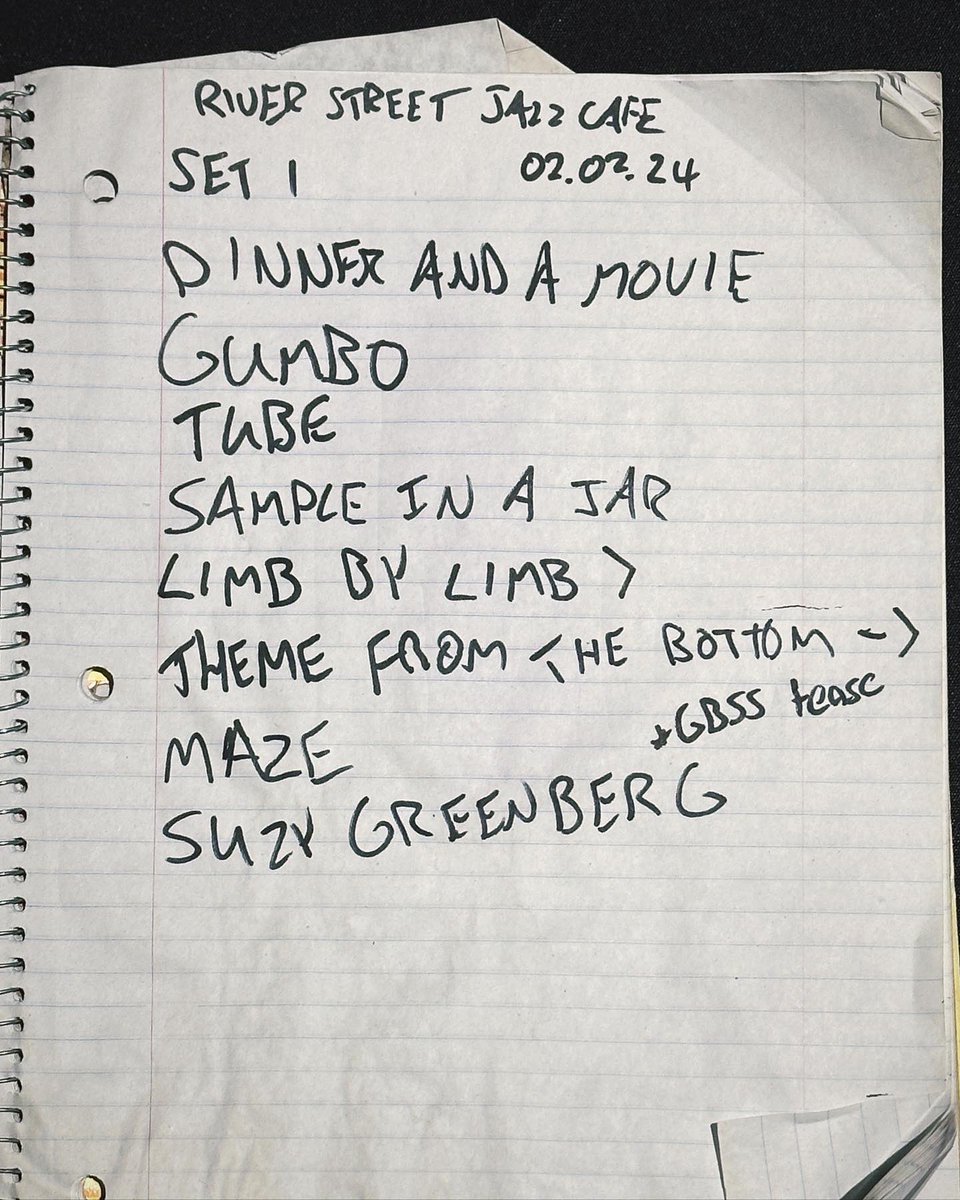 RIVER STREET JAZZ CAFE
SET 1 02.02.24
DINNER AND A MOVIE
GUMBO
TUBE
SAMPLE IN A JAR
LIMB BY LIMB >
THEME FROM THE BOTTOM ->
*GBSS tease
MAZE
SUZY GREENBERG